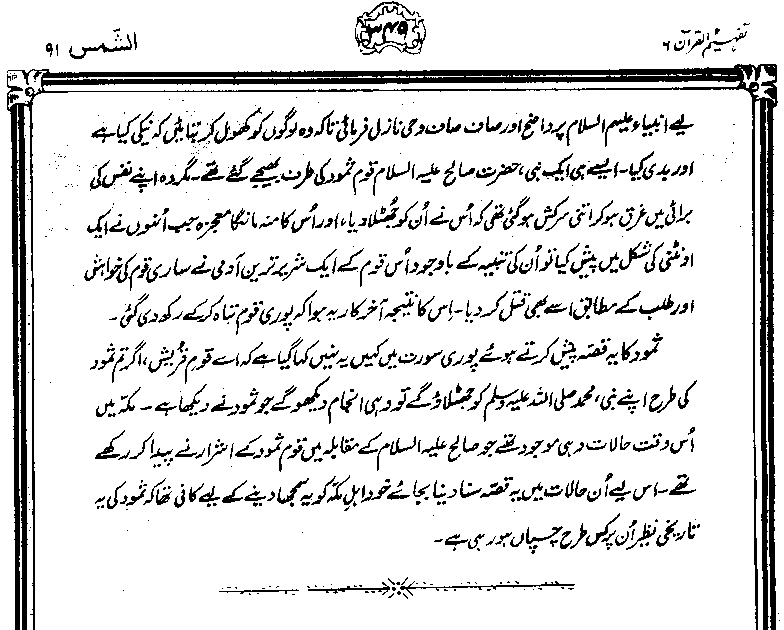 تفہیم القرآن ۶
۳۴۵
الشّمس ۹۱
لیے انبیاء علیہم السلام پر واضح اور صاف صاف وحی نازل فرمائی تاکہ وہ لوگوں کو کھول کر بتائیں کہ نیکی کیا ہے
اور بدی کیا۔ ایسے ہی ایک نبی، حضرت صالح علیہ السلام قوم ثمود کی طرف بھیجے گئے تھے۔ مگر وہ اپنے نفس کی
برائی میں غرق ہو کر اتنی سرکش ہو گئی تھی کہ اُس نے اُن کو جُھٹلا دیا، اور اُس کا منہ مانگا معجزہ جب اُنہوں نے ایک
اونٹنی کی شکل میں پیش کیا تو اُن کی تنبیہ کے باوجود اُس قوم کے ایک شریر ترین آدمی نے ساری قوم کی خواہش
اور طلب کے مطابق اسے بھی قتل کر دیا۔ اِس کا نتیجہ آخر کار یہ ہوا کہ پوری قوم تباہ کر کے رکھ دی گئی۔
ثمود کا یہ قصّہ پیش کرتے ہوئے پوری سورت میں کہیں یہ نہیں کہا گیا ہے کہ اے قومِ قُریش، اگر تم ثمود
کی طرح اپنے نبی، محمد صلی اللہ علیہ وسلم کو جھٹلاؤ گے تو وہی انجام دیکھو گے جو ثمود نے دیکھا ہے۔ مکّہ میں
اُس وقت حالات وہی موجود تھے جو صالح علیہ السلام کے مقابلہ میں قوم ثمود کے اشرار نے پیدا کر رکھے
تھے۔ اس لیے اُن حالات میں یہ قصّہ سنا دینا بجائے خود اہلِ مکّہ کو یہ سمجھا دینے کے لیے کافی تھا کہ ثمود کی یہ
تاریخی نظیر اُن پر کس طرح چسپاں ہو رہی ہے۔